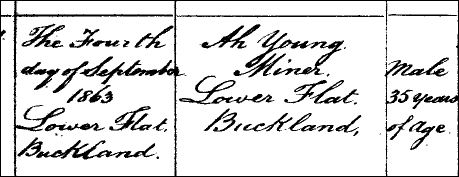 The Fourth
day of September
1863
Lower Flat.
Buckland.
Ah Young
Miner.
Lower Flat.
Buckland,
Male
35 Years
of Age